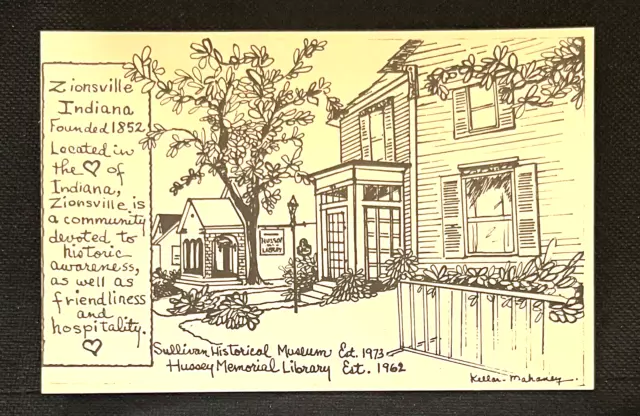 Zionsville
Indiana
Founded 1852
Located in
the ♡ of
Indiana,
Zionsville is
a community
devoted to
historic
awareness,
as well as
friendliness
and
hospitality.
♡
HUSSEY
LIBRARY
Sullivan Historical Museum Est. 1973
Hussey Memorial Library Est. 1962
Keller-Mahaney.